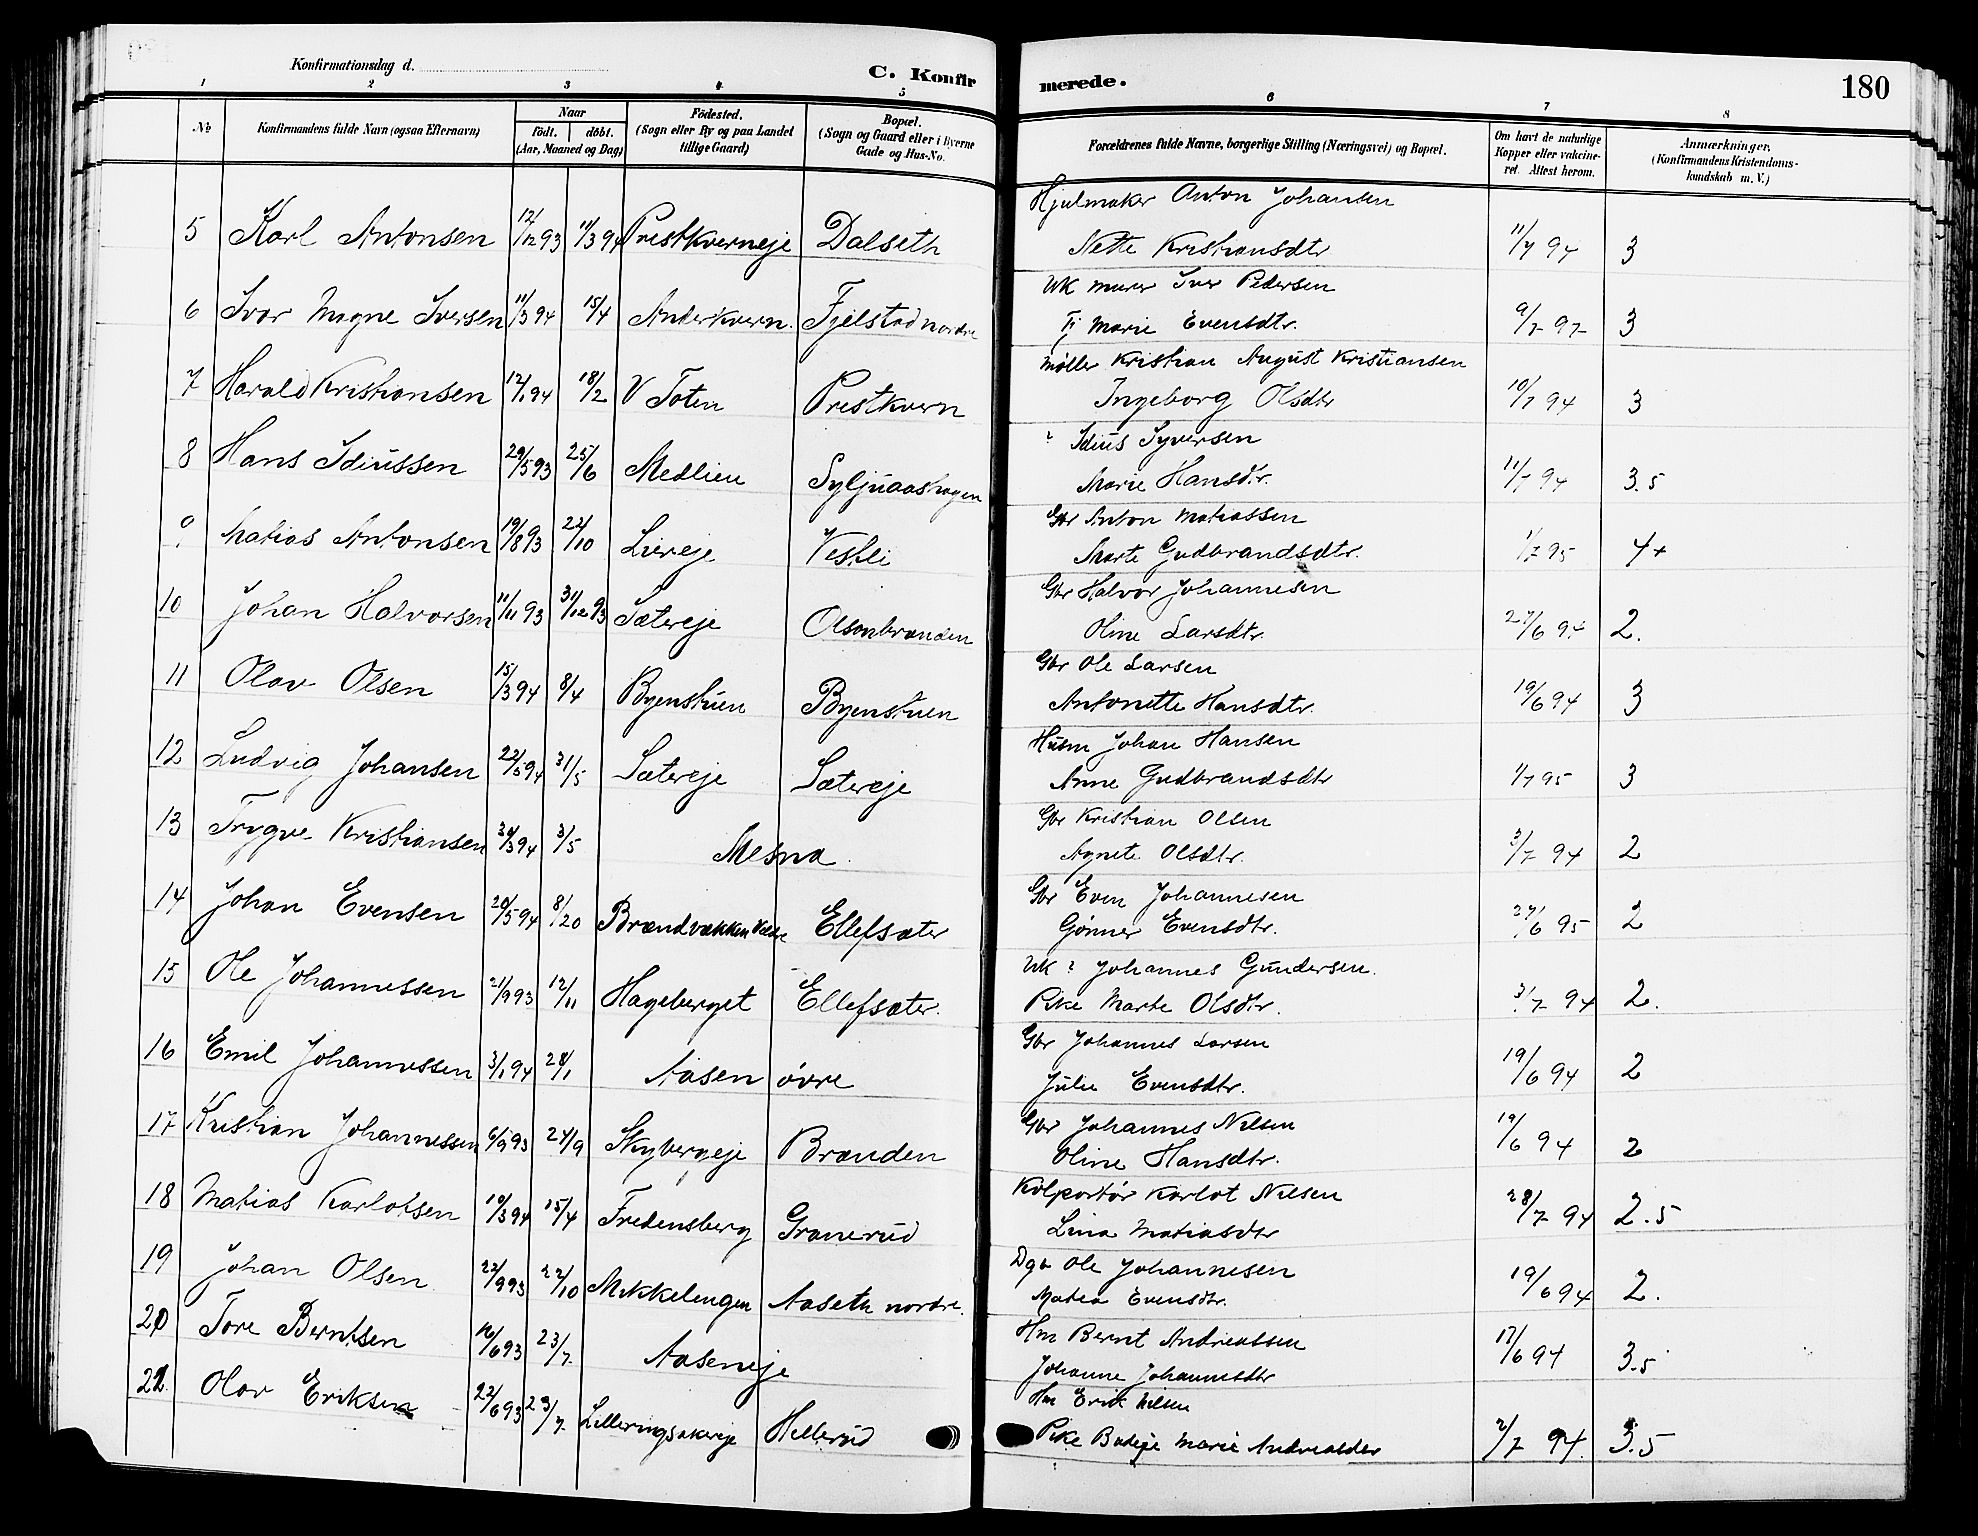 Konfirmationsdag d.
C. Konfir merede. 180
1 2 3 4 5 6 7 8
No
Konfirmandens fulde Navn (ogsaa Efternavn)
Naar
født. døbt.
(Aar, Maaned og Dag)
Födested.
(Sogn eller By og paa Landet
tillige Gaard)
Bopæl.
(Sogn og Gaard eller i Byerne
Gade og Hus-No.
Forældrenes fulde Navne, borgerlige Stilling (Næringsvei) og Bopæl.
Om havt de naturlige
Kopper eller vakcine-
ret. Attest herom.
Anmærkninger,
(Konfirmandens Kristendoms-
kundskab m. V.)
Hjulmaker Anton Johansen
5 Karl Antonsen 12/12 93 11/3 94 Prestkverneje Dalseth Nette Kristiansdtr 11/7 94 3
UK murer Iver Pedersen
6 Ivar Magne Iversen 11/3 94 15/4 Anderkvern. Fjelstad nordre Fj Marie Evensdtr. 9/7 97 3
Møller Kristian August Kristiansen
7 Harald Kristiansen 12/1 94 18/2 V Toten Prestkvern Ingeborg Olsdtr 10/7 94 3
? Idius Syversen
8 Hans Idiussen 29/5 93 25/6 Medlien Syljuaashagen Marie Hansdtr. 11/7 94 3.5
Gbr Anton Matiassen
9 Matias Antonsen 19/8 93 22/10 Liereje Vestli Marte Gudbrandsdtr. 1/7 95 4+
Gbr Halvor Johannesen
10 Johan Halvorsen 11/11 93 31/12 93 Sætereje Olsonbrænden Oline Larsdtr. 27/6 94 2.
Gbr Ole Larsen
11 Olav Olsen 15/3 94 8/4 Byenstuen Byenstuen Antonette Hansdtr. 19/6 94 3
Husm Johan Hansen
12 Ludvig Johansen 22/5 94 31/5 Sætereje Sætereje Anne Gudbrandsdtr 1/7 95 3
Gbr Kristian Olsen
13 Trygve Kristiansen 30/3 94 3/5 Mesna. Agnete Olsdtr. 3/7 94 2
Gbr Even Johannesen
14 Johan Evensen 20/5 94 8/20 Brændvækken Ellefsæter Gønner Evensdtr. 27/6 95 2
UK ? Johannes Gundersen.
15 Ole Johannessen 21/9 93 12/11 Hageberget Ellefsæter. Pike Marte Olsdtr. 3/7 94 2.
Gbr Johannes Larsen
16 Emil Johannessen 3/1 94 28/1 Aasen øvre Julie Evensdtr. 19/6 94 2
Gbr Johannes Nilsen
17 Kristian Johannessen 6/9 93 24/9 Skybergeje Brænden Oline Hansdtr. 19/6 94 2
Kolportør Karlot Nilsen
18 Matias Karlotsen 10/3 94 15/4 Fredensberg Granerud Lina Matiasdtr 28/7 94 2.5
Dgb Ole Johannesen
19 Johan Olsen 22/9 93 22/10 Mikkelengen Aaseth nordre. Matea Evensdtr. 19/6 94 2.
Hm Bernt Andreassen
20 Tore Berntsen 16/6 93 23/7 Aaseneje Johanne Johannesdtr 17/6 94 3.5
Hm Erik Nilsen
21. Olav Eriksen 22/6 93 23/7 Lilleringsakereje Hellerud Pike Badeje Marie Andreasdtr 2/7 94. 3.5